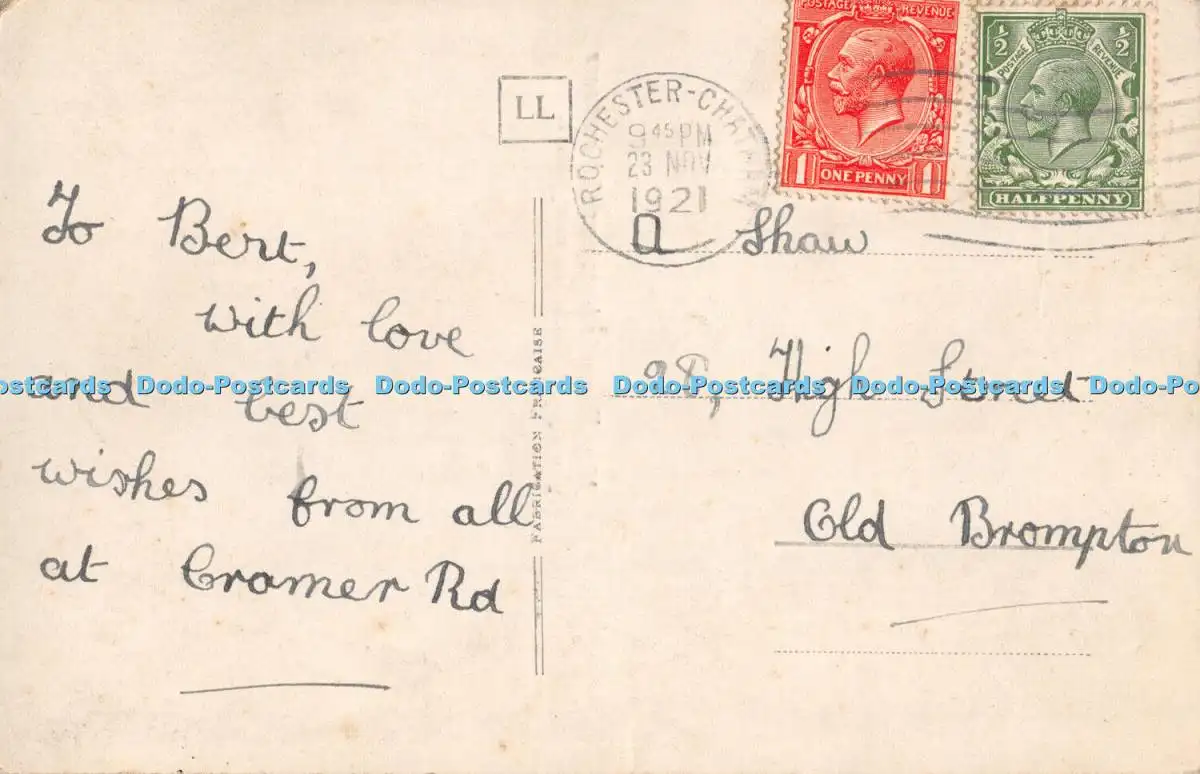 POSTAGE REVENUE
ONE PENNY
1 1
½ ½
POSTAGE REVENUE
HALFPENNY
LL
ROCHESTER-CHATHAM
9 45 PM
23 NOV
1921
To Bert,
with love
and best
wishes from all
at Cramer Rd
FABRICATION FRANÇAISE
A Shaw
98, High Street
Old Brompton
Dodo-Postcards Dodo-Postcards Dodo-Postcards Dodo-Postcards Dodo-Postcards Dodo-Postcards